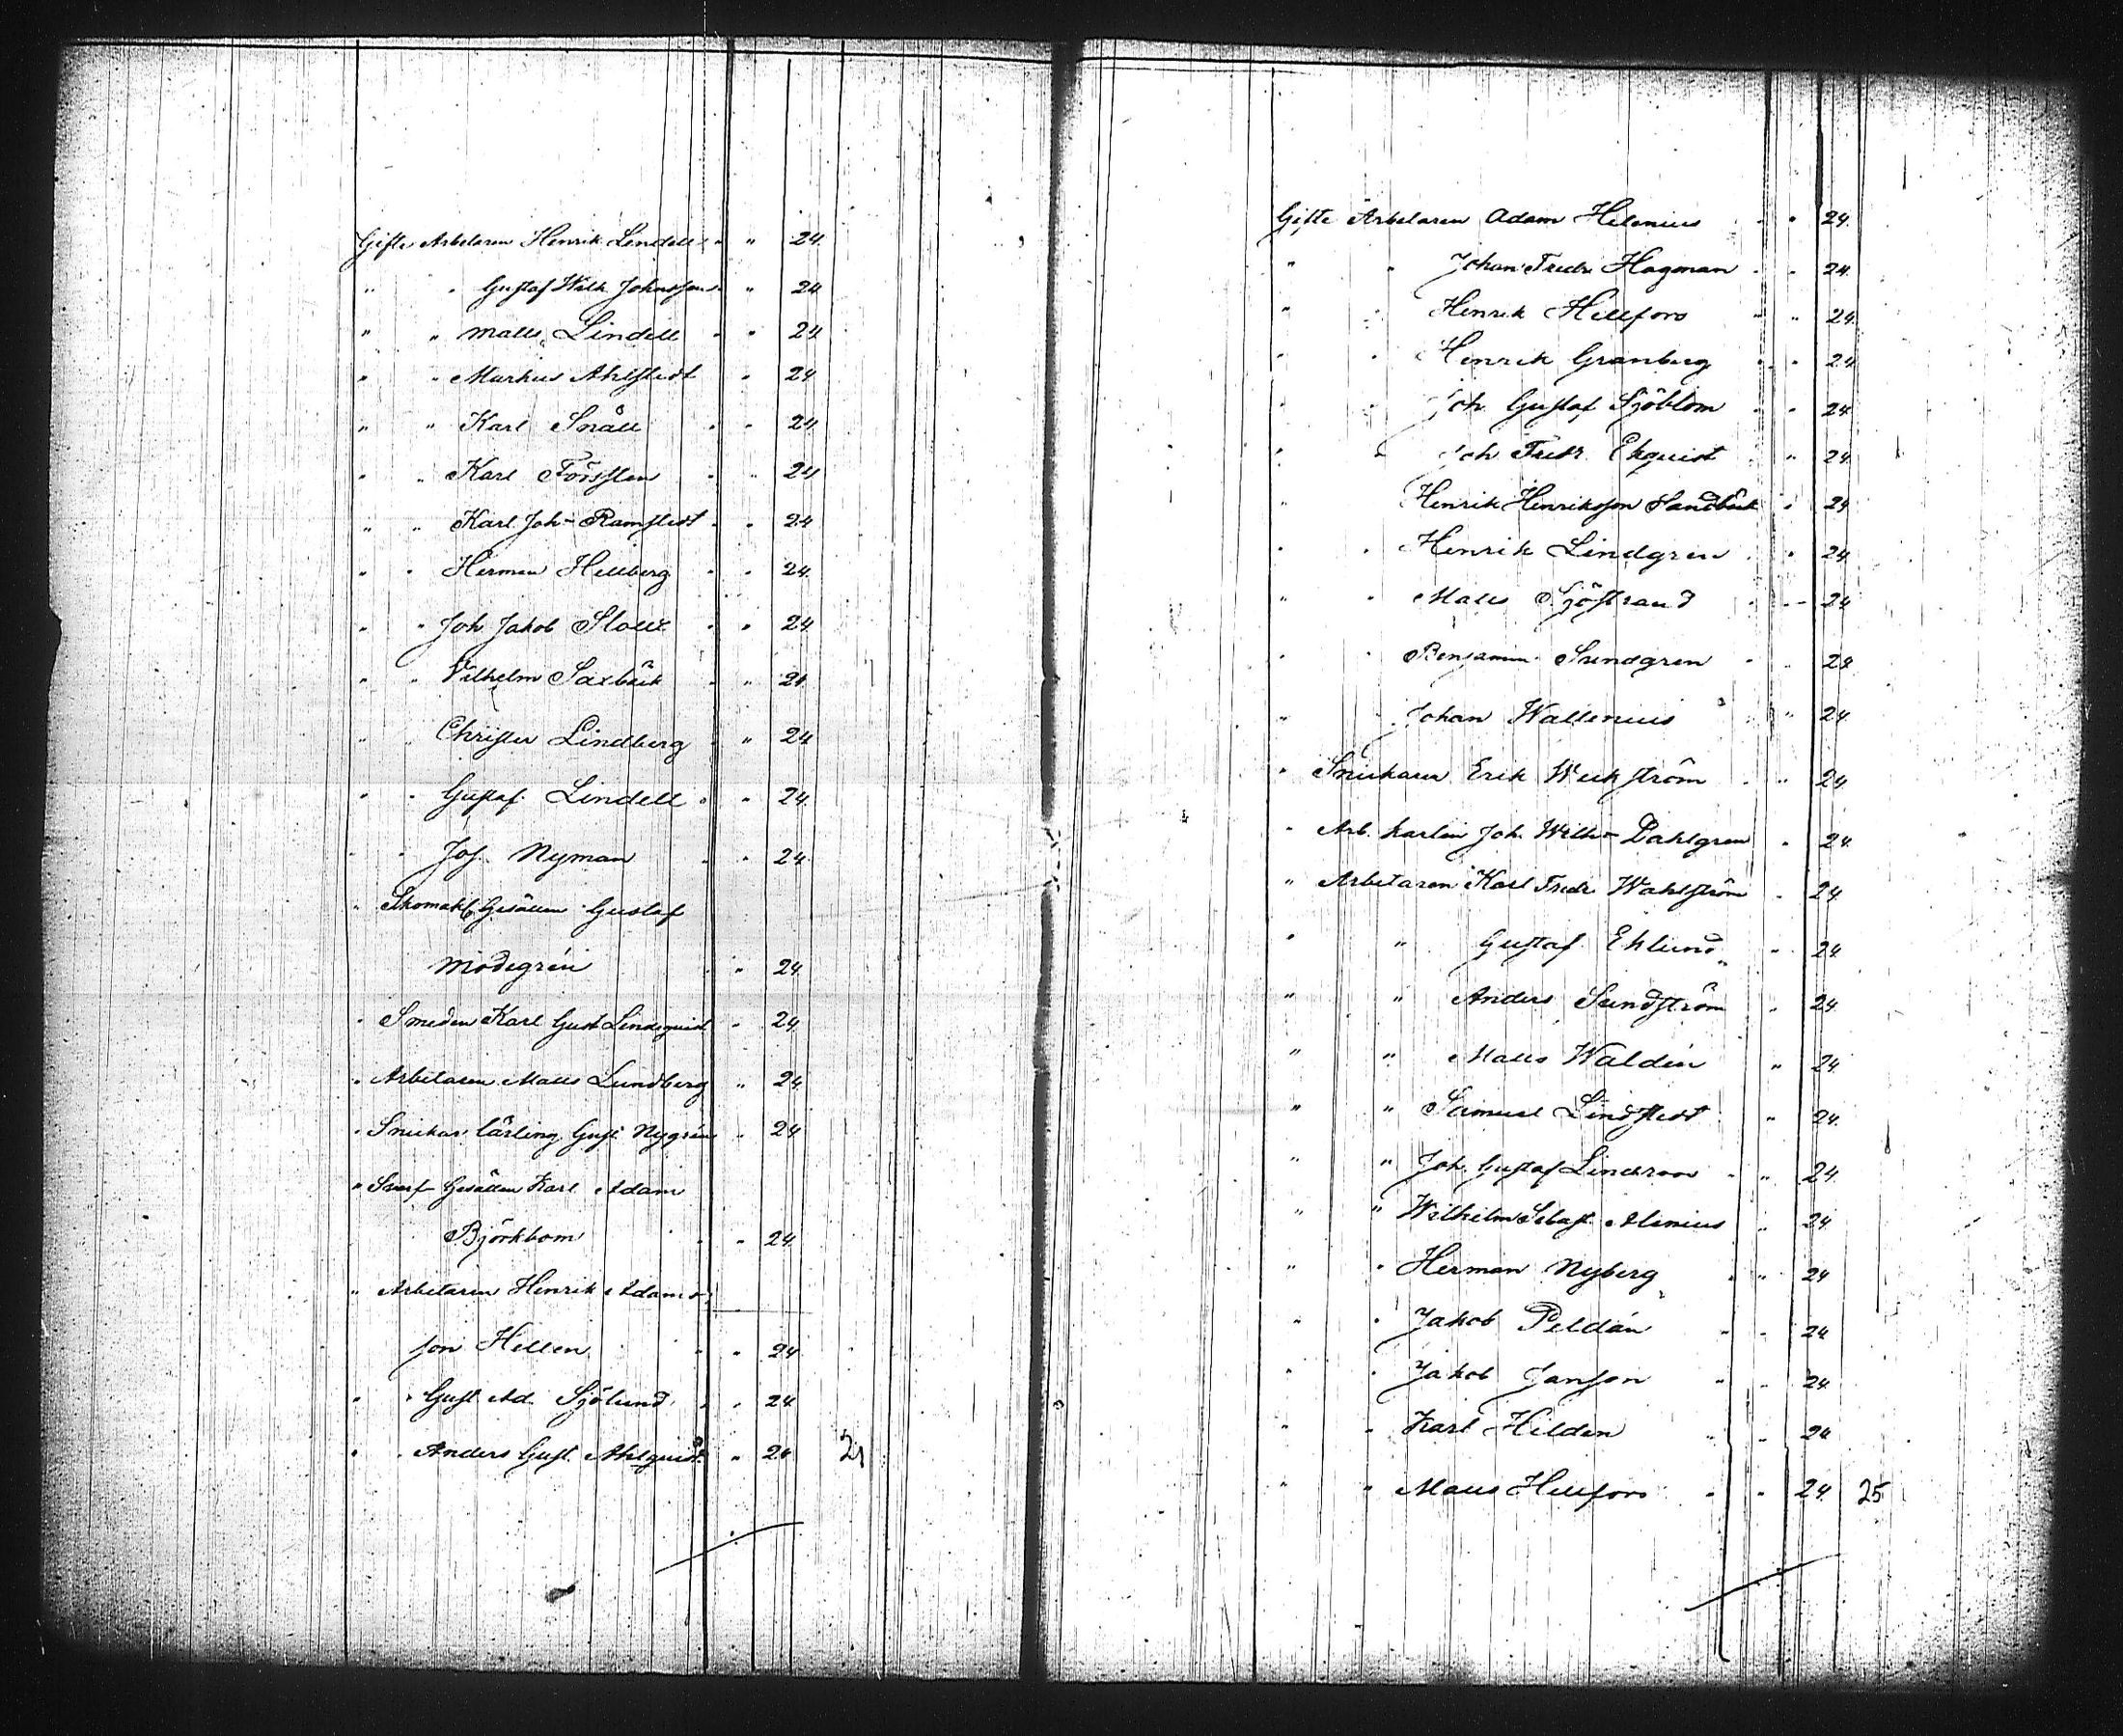 Gifte Arbetaren Henrik Lindell " " 24
" " Gustaf Wilh. Johnsson " 24
" " Matts Lindell " " 24
" " Markus Ahlstedt " 24
" " Karl Snåll " " 24
" " Karl Forsstén " " 24
" " Karl Joh- Ramstedt " " 24
" " Herman Hellberg " " 24
" " Joh Jakob " " 24
" " Vilhelm Saxbäck " " 24
" " Christer Lindberg " " 24
" " Gustaf Lindell " " 24
" " Jos. Nyman " " 24
" Skomak. Gesällen Gustaf
Modegrén " " 24
" Smeden Karl Gust Lindquist " 24
" Arbetaren Matts Lundberg " 24
" Snickar lärling Gust. Nygrén " 24
" Svarf- Gesällen Karl Adam
Björkbom " " 24
" Arbetaren Henrik Adams-
son Hellen " " 24
" " Gust. Ad. Sjölund " " 24
" " Anders Gust. Ahlquist " 24
Gifte Arbetaren Adam Helenius " " 24
" " Johan Fredr. Hagman " " 24
" " Henrik Hellfors " " 24
" " Henrik Granberg " " 24
" " Joh. Gustaf Sjöblom " " 24
" " Joh Fredr. Ekquist " " 24
" Henrik Henriksson Sandbäck " 24
" " Henrik Lindgren " " 24
" " Matts Sjöstrand " " 24
" " Benjamin Sundgren " " 24
" " Johan Wallenius " " 24
" Snickaren Erik Weckström " " 24
" Arb. karlen Joh. Wilh- Dahlgren " 24
" Arbetaren Karl Fredr Wahlström " 24
" " Gustaf Eklund " " 24
" " Anders Sundström " 24
" " Matts Waldén " 24
" " Samuel Lindstedt " 24
" " Joh. Gustaf Lindroos " " 24
" " Wilhelm Sebast. Alenius " 24
" " Herman Nyberg " " 24
" " Jakob Peldán " " 24
" " Jakob Janson " " 24
" " Karl Hilden " " 24
" " Matts Hellfors " " 24 25